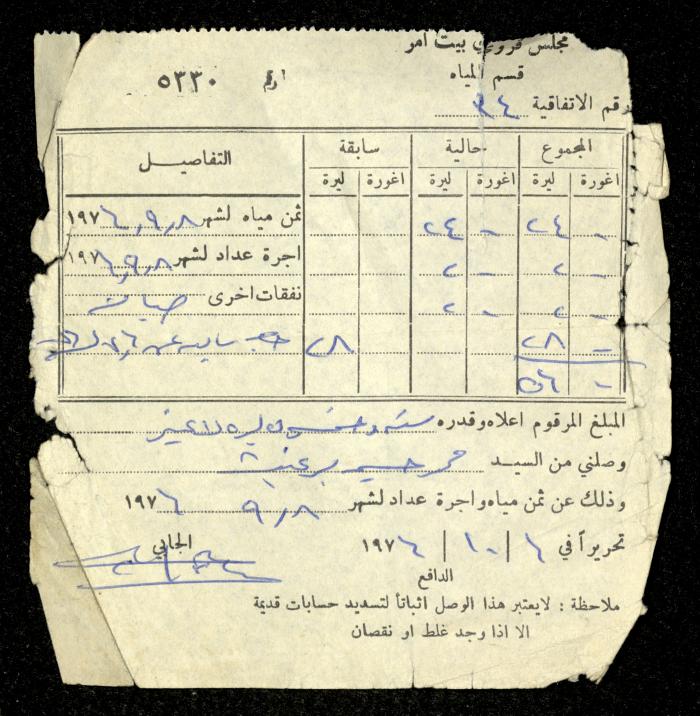 مجلس قروي بيت امر
قسم المياه
رقم ٥٣٣٠
رقم الاتفاقية ٣٤
المجموع حالية سابقة التفاصيل
اغورة ليرة اغورة ليرة اغورة ليرة
- ٢٤ - ٢٤ ثمن مياه لشهر ٩,٨ ١٩٧٦
- ٢ - ٢ اجرة عداد لشهر ٩,٨ ١٩٧٦
- ٢ - ٢ نفقات اخرى صيانة
- ٢٨ ٢٨
- ٥٦
المبلغ المرقوم اعلاه وقدره ستة وخمسون ليرة لا غير
وصلني من السيد محمد حسين
وذلك عن ثمن مياه واجرة عداد لشهر ٩,٨ ١٩٧٦
تحريراً في ٦ / ١٠ / ١٩٧٦
الجابي
الدافع
ملاحظة : لايعتبر هذا الوصل اثباتاً لتسديد حسابات قديمة
الا اذا وجد غلط او نقصان